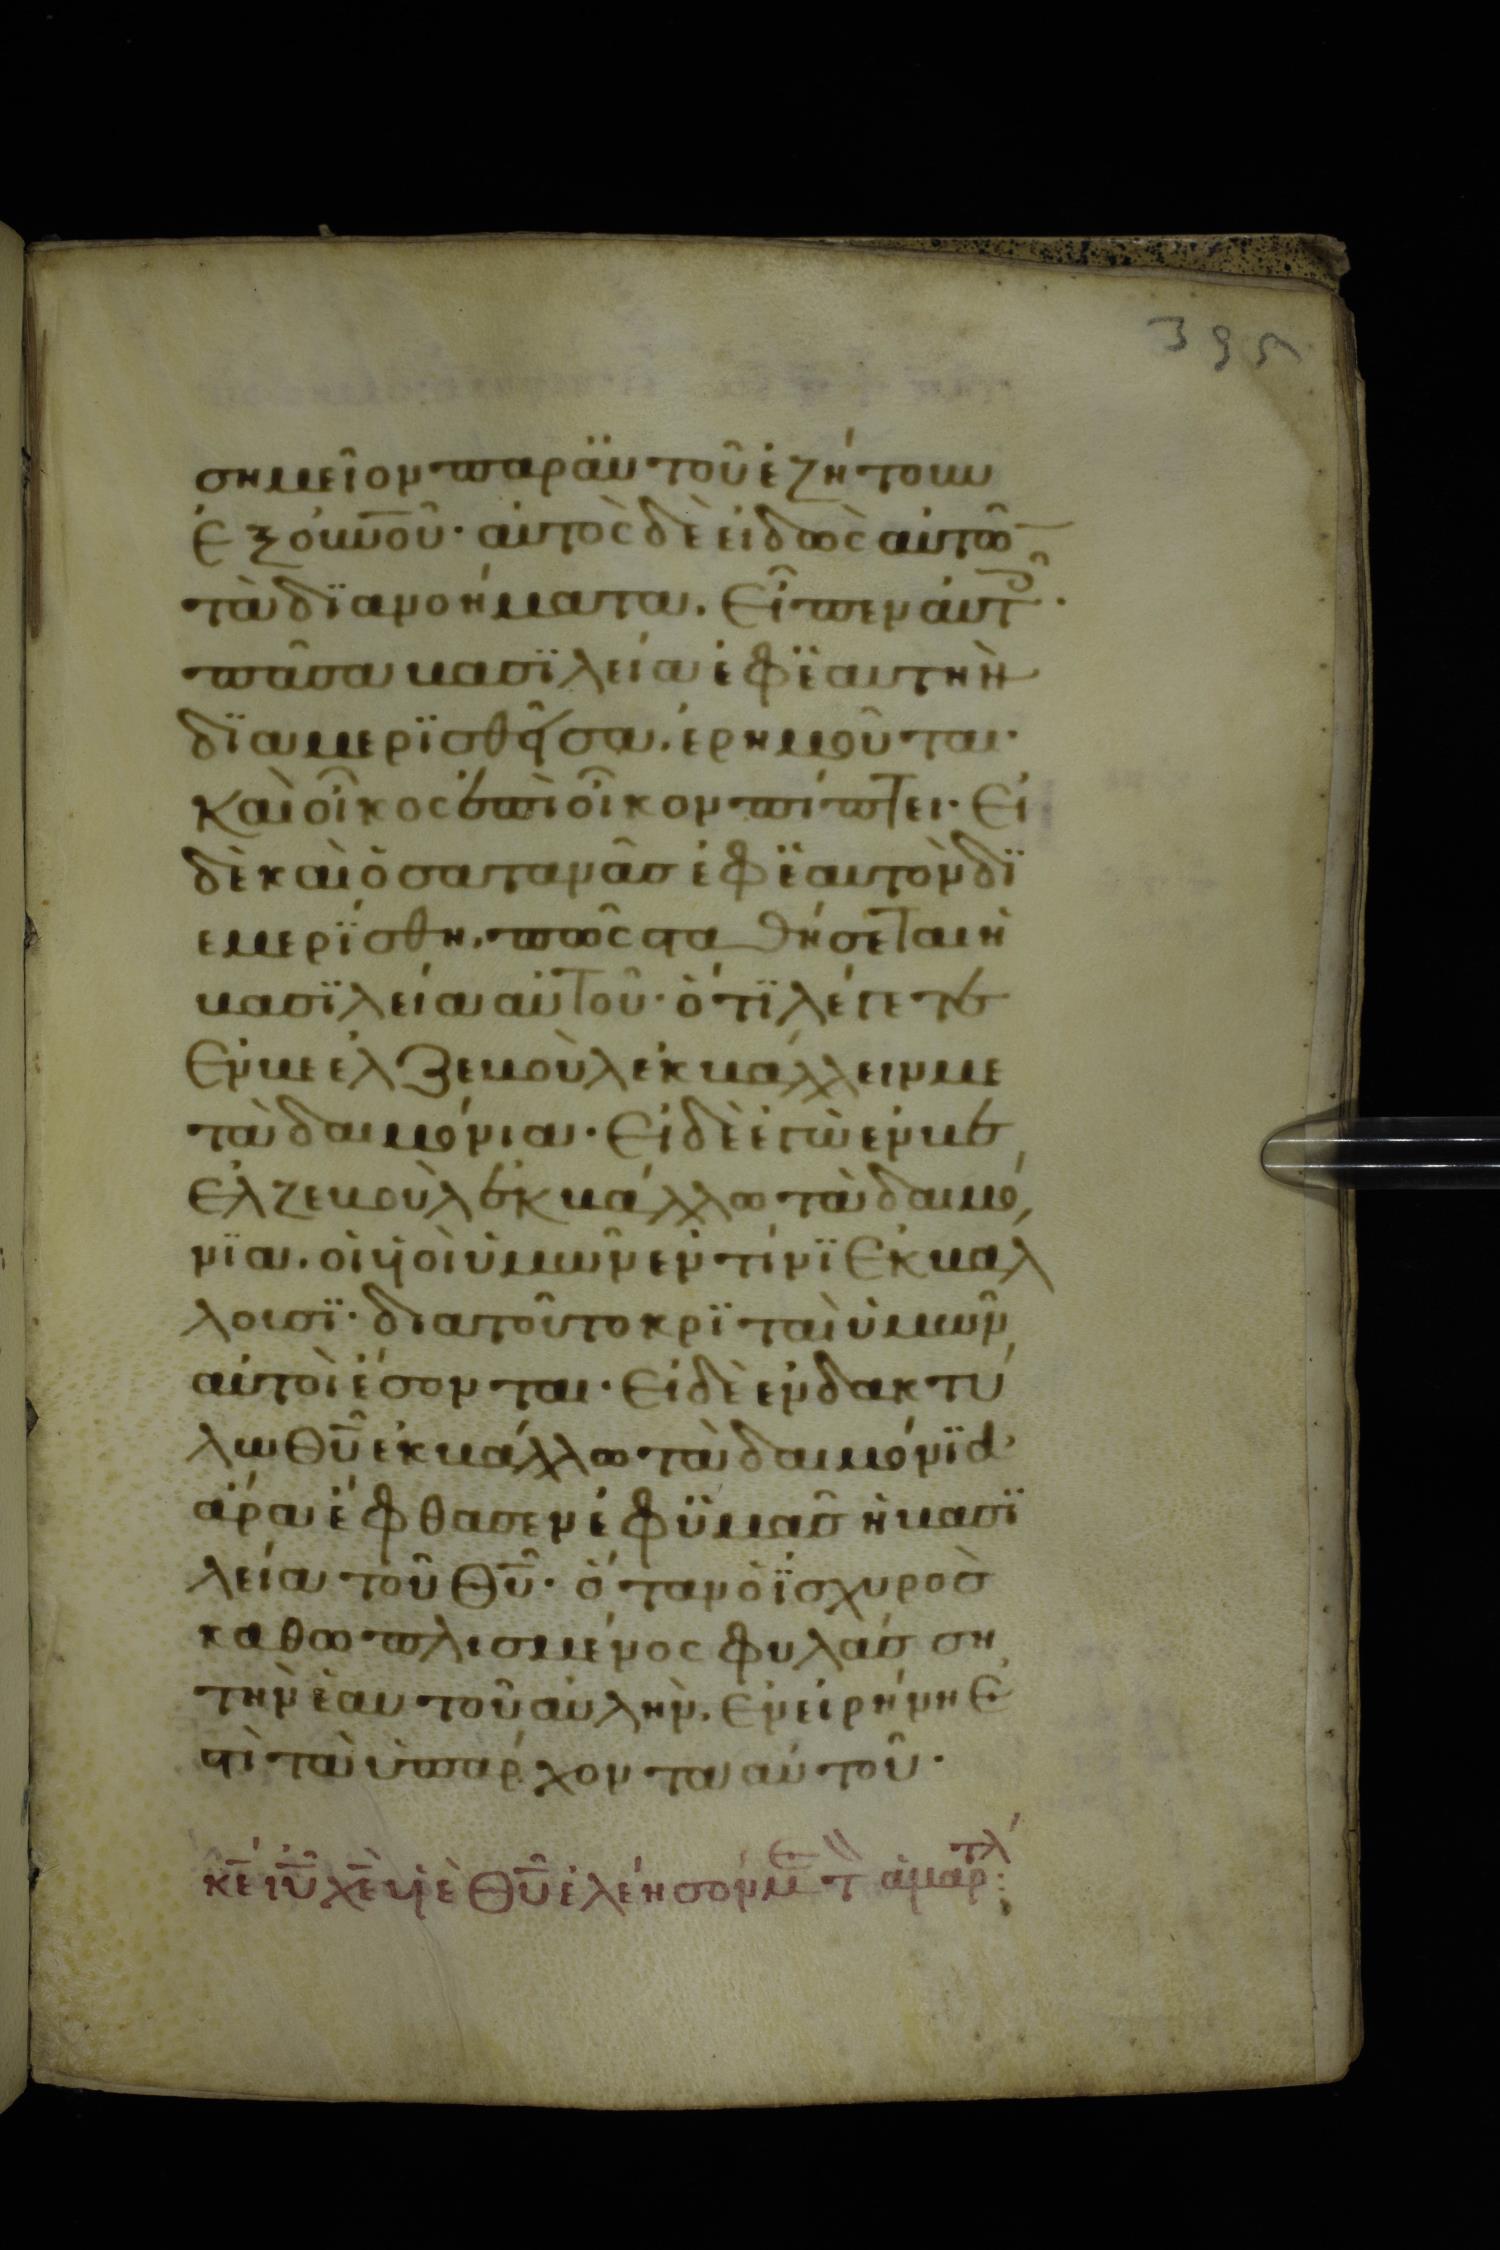 395
σημεῖον παρ αὐτοῦ ἐζήτουν
ἐξ ὀυνοῦ· αὐτὸς δὲ εἰδὼς αὐτῶ
τὰ διανοήματα. εἶπεν αὐτ·
πᾶσα βασϊλεία ἐφ ἑαυτὴν
δϊαμερϊσθῆσα. ἐρημοῦται·
καὶ οἶκος ἐπὶ οἶκον πίπτει· Εἰ
δὲ καὶ ὁ σατανᾶσ ἐφ ἑαυτὸν δϊ
εμερίσθη. πῶς σταθήσεται ἡ
βασϊλεία αὐτοῦ· ὅτϊ λέγετε
Ἐν βεελζεβοὺλ ἐκβάλλειν με
τὰ δαιμόνια· Εἰ δὲ ἐγὼ ἐν βε
ελζεβοὺλ ἐκβάλλω τὰ δαιμό
νϊα. οἱ ϋἱοὶ ὑμῶν ἐν τίνϊ ἐκβαλ
λουσϊ· διατοῦτο κρϊταὶ ὑμῶν
αὐτοὶ ἔσονται· Εἰ δὲ ἐν δακτύ
λω θῦ ἐκβάλλω τὰ δαιμόνϊα·
ἄρα ἔφθασεν ἐφ ϋμᾶσ ἡ βασϊ
λεία τοῦ Θῦ· ὅταν ὁ ϊσχυρὸσ
καθωπλισμένος φυλάσση
τὴν ἑαυτοῦ αὐλὴν. Ἐν εἰρήνη ἐ
στὶ τὰ ὑπάρχοντα αὐτοῦ·
κε ιῦ χὲ ϋἱὲ Θῦ ἐλέησόν με τ ἁμαρτλ: